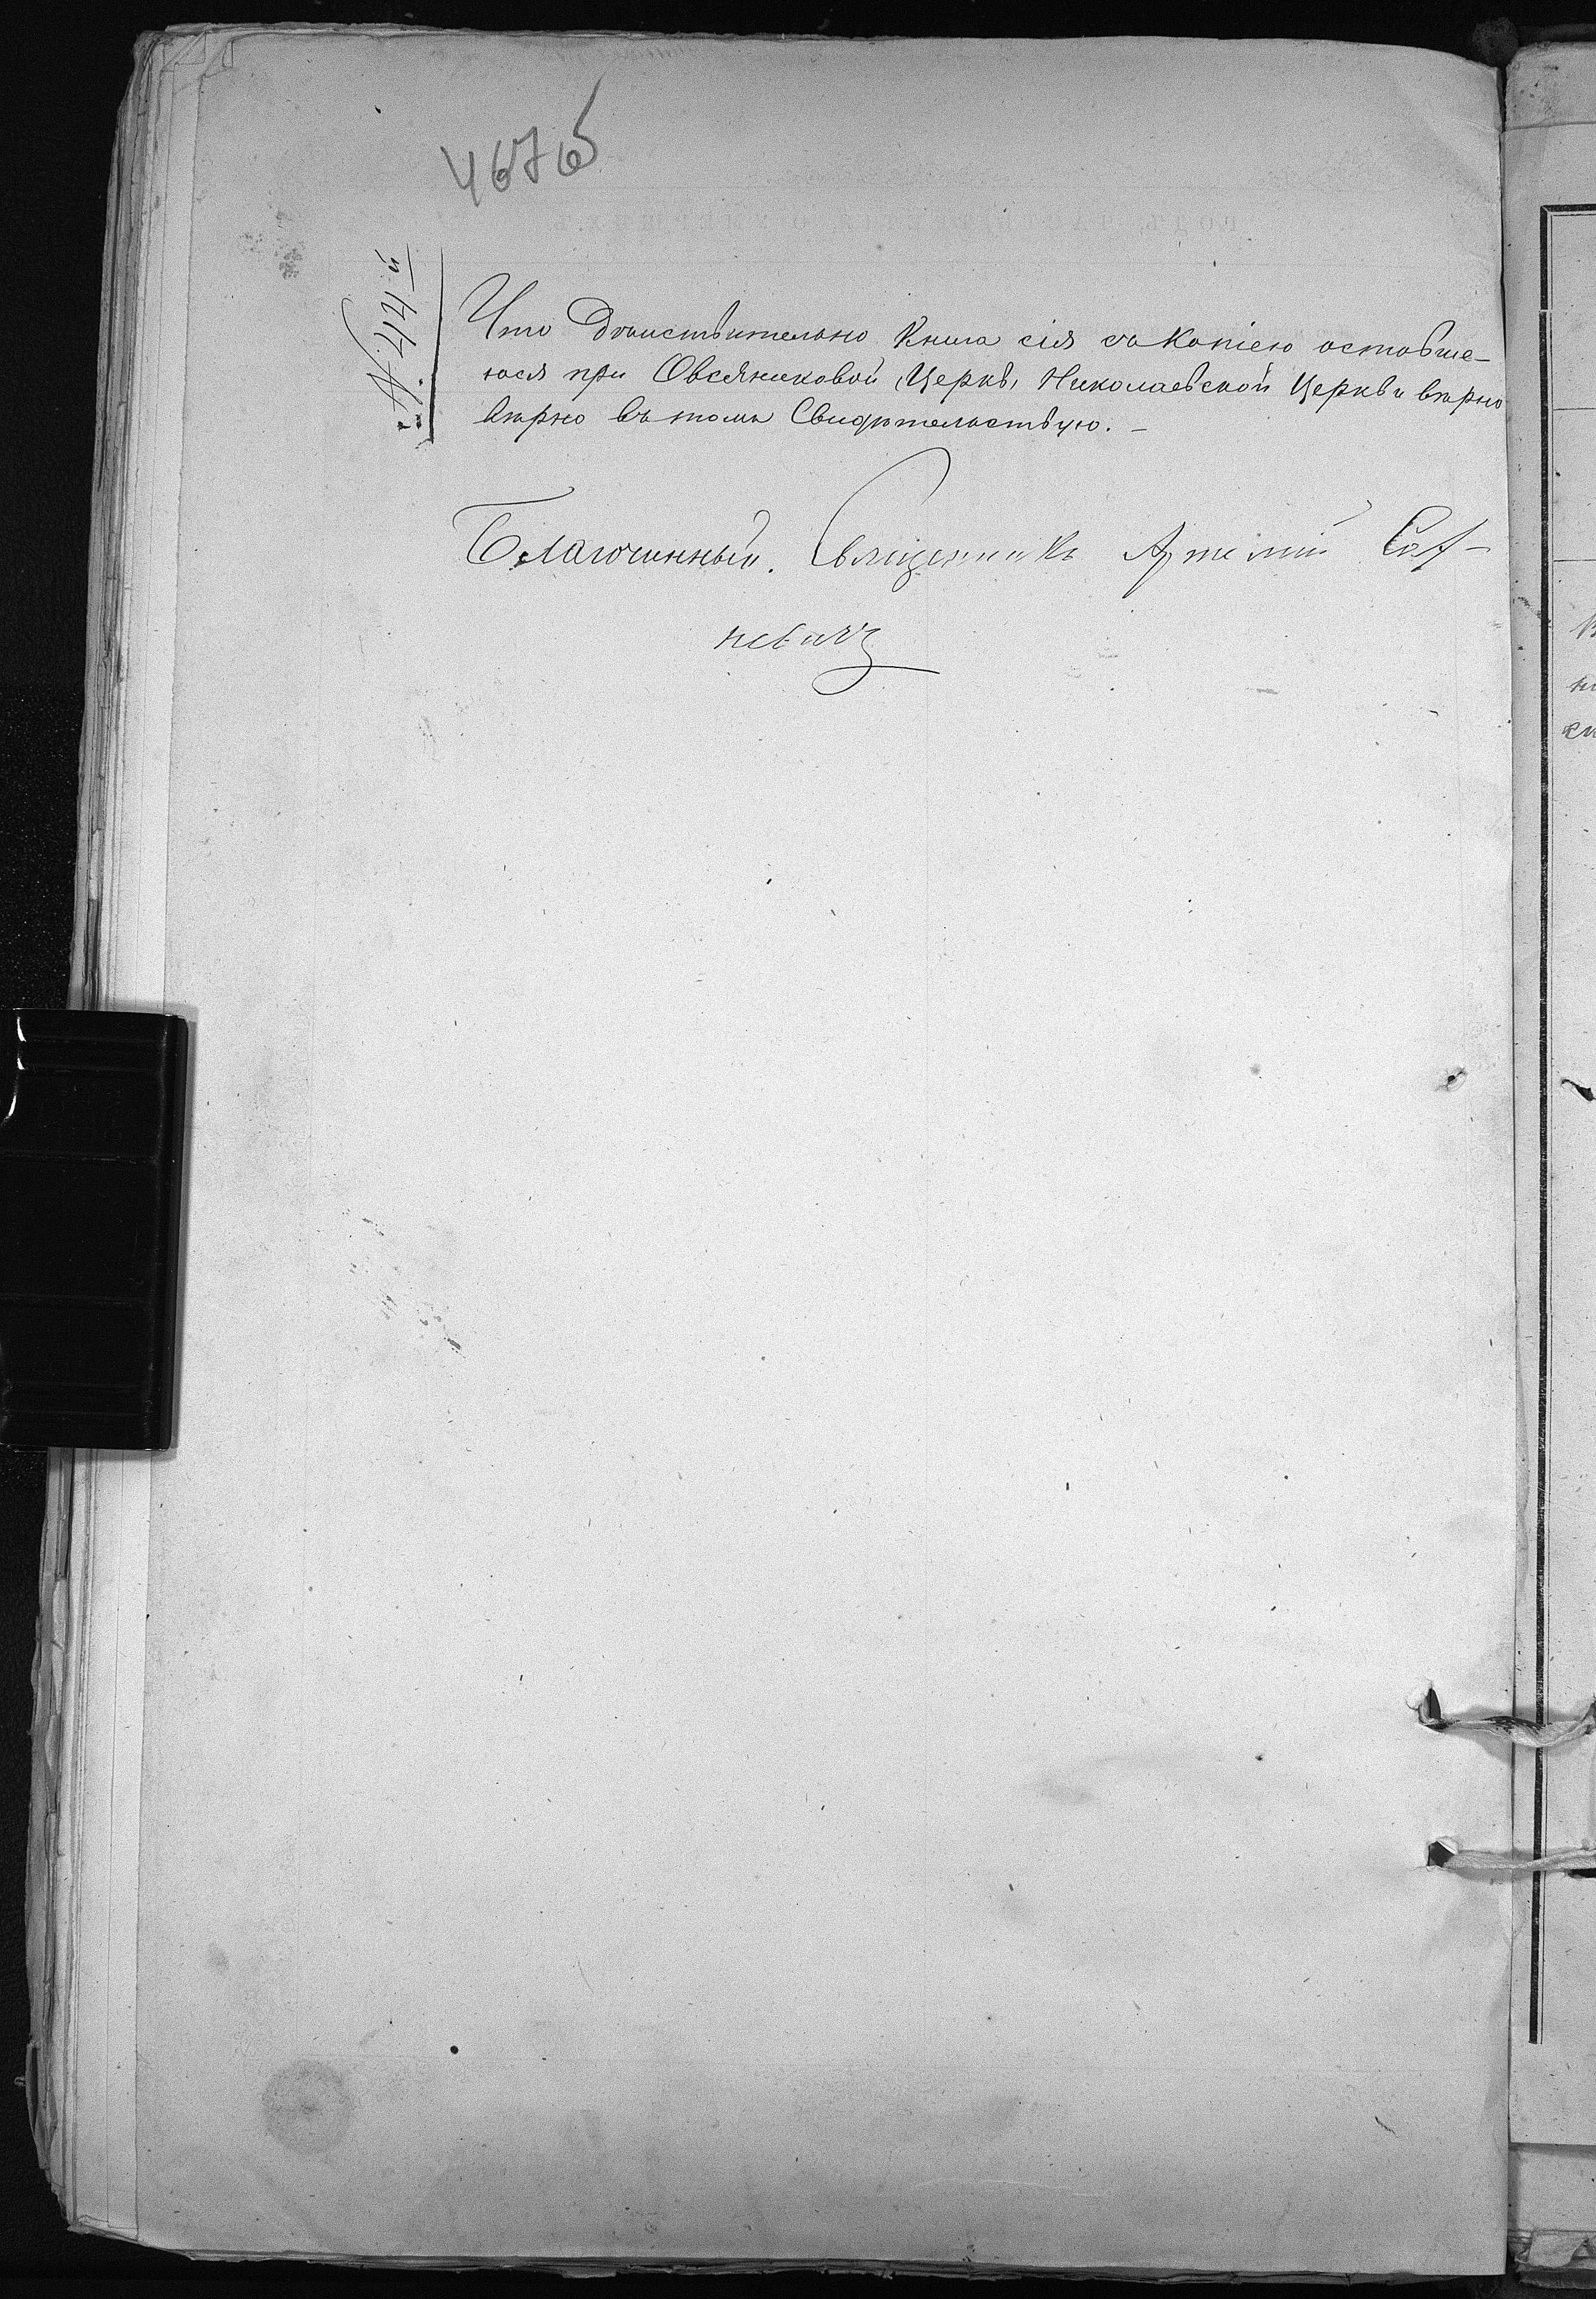 467об
№ 44й
Что дѣйствительно книга сія съ копіею оставше-
юся при Овсяниковой Церкв, Николаевской Церкви вѣрно
вѣрно въ томъ Свидѣтельствую. –
Благочинный. Священникъ Артемій